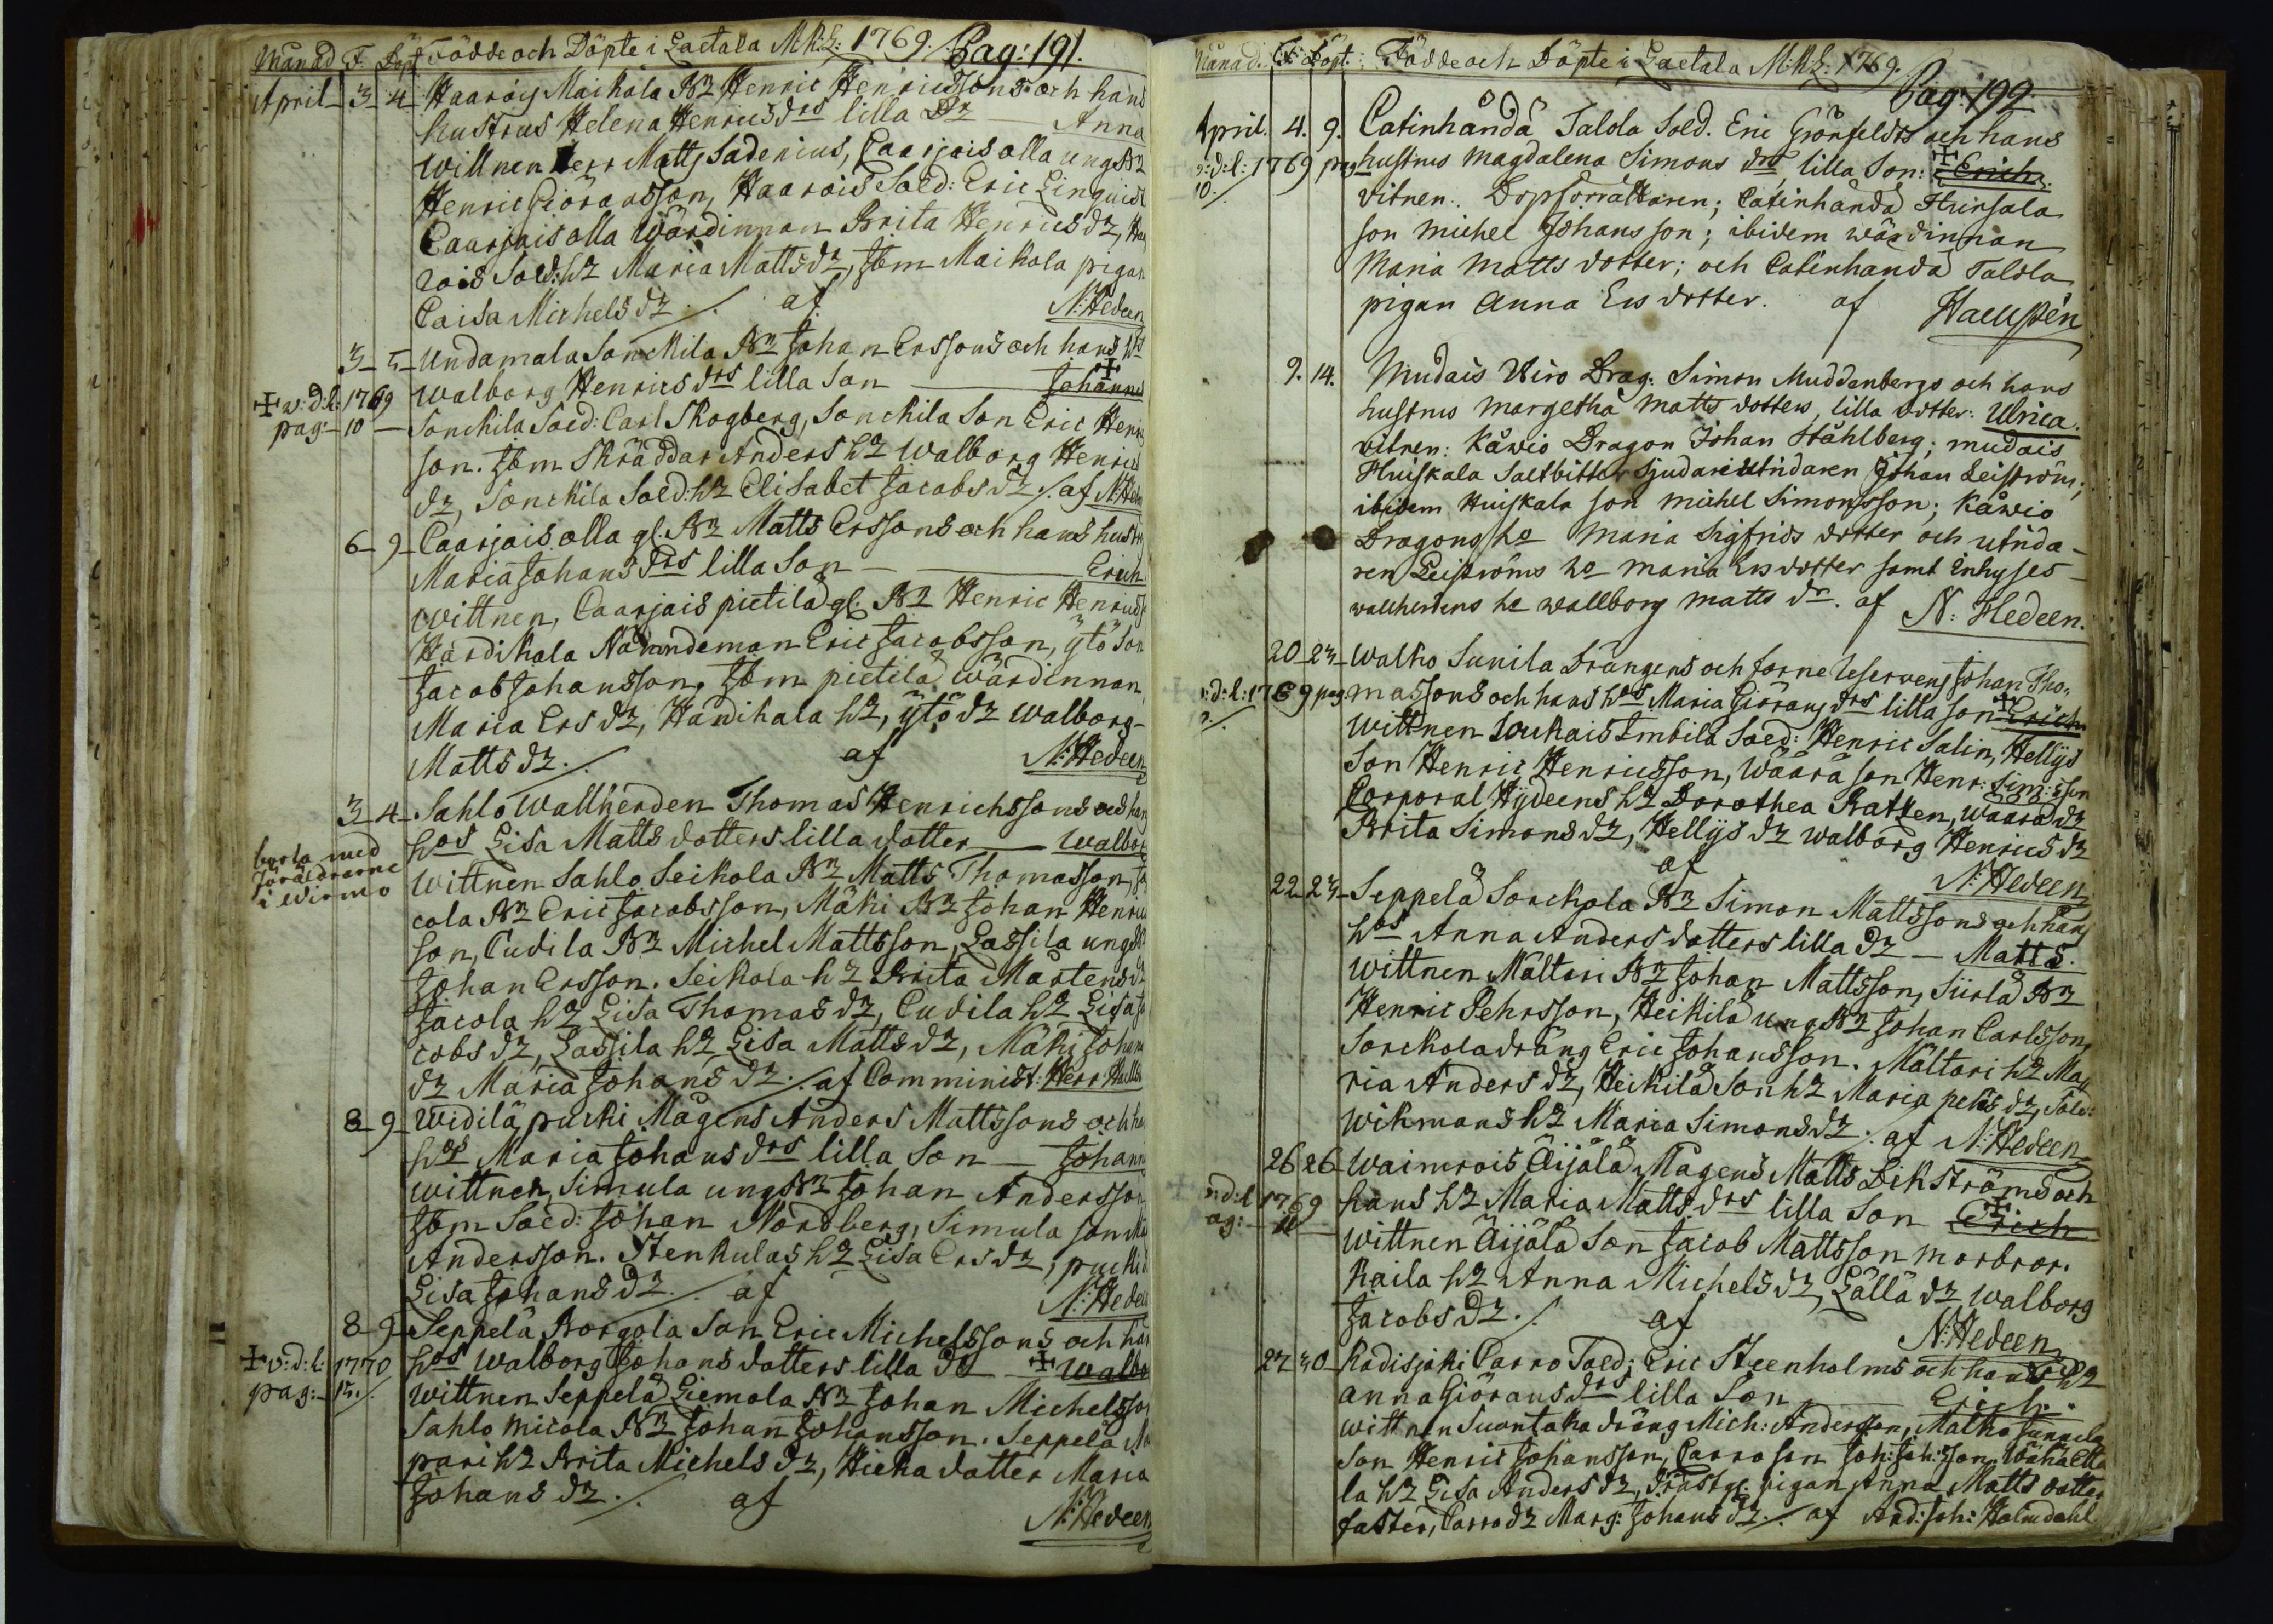 Månad F. Döpt Födde och Döpte i Laetala M:K:L: 1769. Pag: 191.
April 3 4 Haarois Maikola Br Henric Henricssons och hans
hustrus Helena Henricsdrs lilla Dr Anna
Wittnen Herr Matts Sadenius, Caarjais alla ung Br
Henric Giöransson, Haarois Sold: Eric Linquist
Caarjais alla Wärdinnan Brita Henricsdr,
rois Sold: hr Maria Mattsdr, Ibm Maikola pigan
Caisa Michelsdr ./. af N: Hedeen
3 5 Undamala Sonckila Br Johan Erssons och hans
Walborg Henricsdrs lilla Son Johannes
w: d: l: 1769
pag: 10 Sonckila Sold: Carl Skogberg, Sonckila Son Eric Henrics
son. Ibm Skräddar Anders hr Walborg Henrics
dr, Sonckila Sold: hr Elisabet Jacobsdr ./. af N: Hedeen
6 9 Caarjais alla gl. Br Matts Erssons och hans hustrus
Maria Johansdrs lilla Son Erich
Wittnen, Caarjais pietilä gl. Br Henric Henrics
Härdikala Nämndeman Eric Jacobsson, ylö Son
Jacob Johansson, Ibm pietilä wärdinnan
Maria Ersdr, Händikala hr, ylö dr Walborg
Mattsdr ./. af N: Hedeen
3 4 Sahlo Wallherden Thomas Henrichssons och hans
hos Lisa Matts dotters lilla dotter Walborg
borta med
föräldrarne
i Wirmo
Wittnen Sahlo Seikola Br Matts Thomasson, Ja
cola Br Eric Jacobsson, Mäki Br Johan Henrics
son, Cudila Br Michel Mattsson, Lassila ung Br
Johan Ersson. Seikola hr Brita Mårtensdr
Jacola hr Lisa Thomasdr, Cudila hr Lisa Ja
cobsdr, Lassila hr Lisa Mattsdr, Mäki Johans
dr Maria Johansdr ./. af Comminist: Herr
8 9 Widilä pucki Mågens Anders Mattssons och hans
hos Maria Johansdrs lilla Son Johannes
Wittnen, Simula ung Br Johan Andersson
Ibm Sold: Johan Nordberg, Simula Son
Andersson. Stenkulas hr Lisa Ersdr, pucki
Lisa Johansdr ./. af N: Hedeen
8 9 Seppelä Borgola Son Eric Michelssons och hans
hos Walborg Johans dotters lilla dr Walborg
w: d: l: 1770
pag: 15./.
Wittnen Seppelä Liemola Br Johan Michelsson
Sahlo Micola Br Johan Johansson. Seppelä
pari hr Brita Michelsdr, Hieka dotter Maria
Johansdr ./. af
N: Hedeen
Månad. F: Döpt. Födde och Döpte i Laetala M:K:L: 1769.
Pag: 199.
April. 4. 9. Catinhändä Talola Sold. Eric Grönfeldts och hans
: d: l: 1769 pag
10./.
hustrus Magdalena Simons drs, lilla Son: Erich.
vitnen. Dopförrättaren; Catinhändä Hursala
son Michel Johansson; ibidem wärdinnan
Maria Matts dotter; och Catinhändä Talola
pigan Anna Ers dotter. af
9. 14. Mudais Wiro Drag: Simon Muddenbergs och hans
hustrus Margetha Matts dotters, lilla dotter: Ulrica.
vitnen: Käwio Dragon Johan Ståhlberg; mudais
Huiskala Saltbitter Sjudare Utridaren Johan Leiström;
ibidem Huiskala son Michel Simonsson; Käwio
Dragons ho Maria Sigfrids dotter och utrida-
ren Leiströms ho Maria Ers dotter samt Inhyses
wallherdens ho wallborg Matts dr. af N: Hedeen.
20 23 Walko Sunila Drängens och forne Reservens Johan Tho-
: d: l: 1769 pag.
massons och hans hos Maria Giörans drs lilla Son Erich
Wittnen Soukais Imbila Sold: Henric Salin, Hellys
Son Henric Henricsson, Wäärä son Henr: Sim:sson
Corporal Hydeens hr Dorothea Ratken, Wäärä dr
Brita Simonsdr, Hellys dr Walborg Henricsdr
af N: Hedeen
22 23 Seppelä Sorckola Br Simon Mattssons och hans
hos Anna Anders dotters lilla dr Matts.
Wittnen Mältari Br Johan Mattsson, Siirlä Br
Henric Pehrsson, Heikilä ung Br Johan Carlsson,
Sorckola dräng Eric Johansson. Mältari hr Ma
ria Andersdr, Heikilä Son hr Maria pehrsdr, Sold:
Wikmans hr Maria Simonsdr ./. af N: Hedeen
26 26 Waimrois Äijälä Mågens Matts Ekströms och
d: l 1769
ag: 11
hans hr Maria Matts drs lilla Son Erich
Wittnen Äijälä Son Jacob Mattsson morbror.
Kaila hr Anna Michelsdr, Lällä dr Walborg
Jacobsdr ./. af N: Hedeen
27 30 Kadisjäki Carro Sold: Eric Steenholms och hans hr
Anna Giörans drs lilla Son Erich.
Wittnen Suontaka dräng Mich: Andersson, Malko Sunnila
Son Henric Johansson, Carro son Joh: Joh:sson. Wähäetta
la hr Lisa Andersdr, Prästg: pigan Anna Matts dotter
faster, Carro dr Marg: Johansdr ./. af And: Joh: Holmdahl